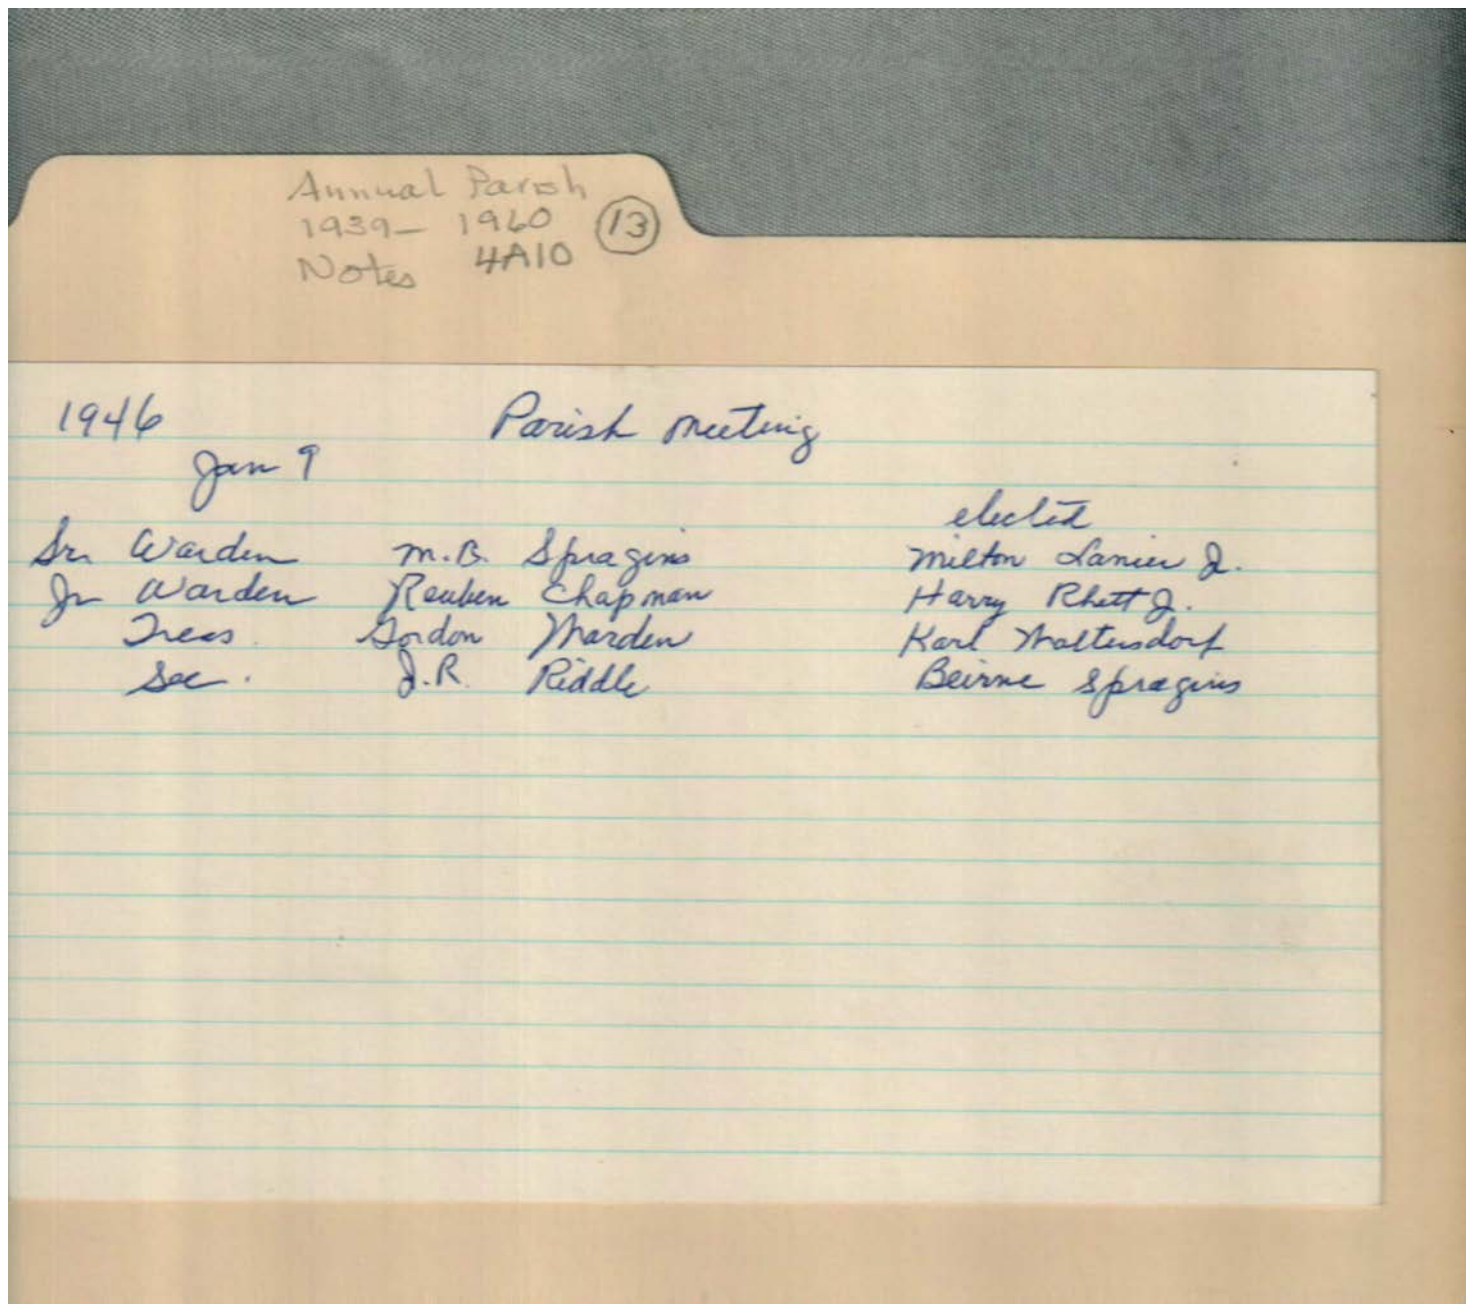 Annual Parish
1939- 1960 13
Notes 4A10
1946 Parish Meeting
Jan 9
elected
Sr. Warden M.B. Spragins Milton Lanier J.
Jr Warden Reuben Chapman Harry Rhett J.
Treas. Gordon Marden Karl Woltersdorf
Sec. J.R. Riddle Beirne Spragins